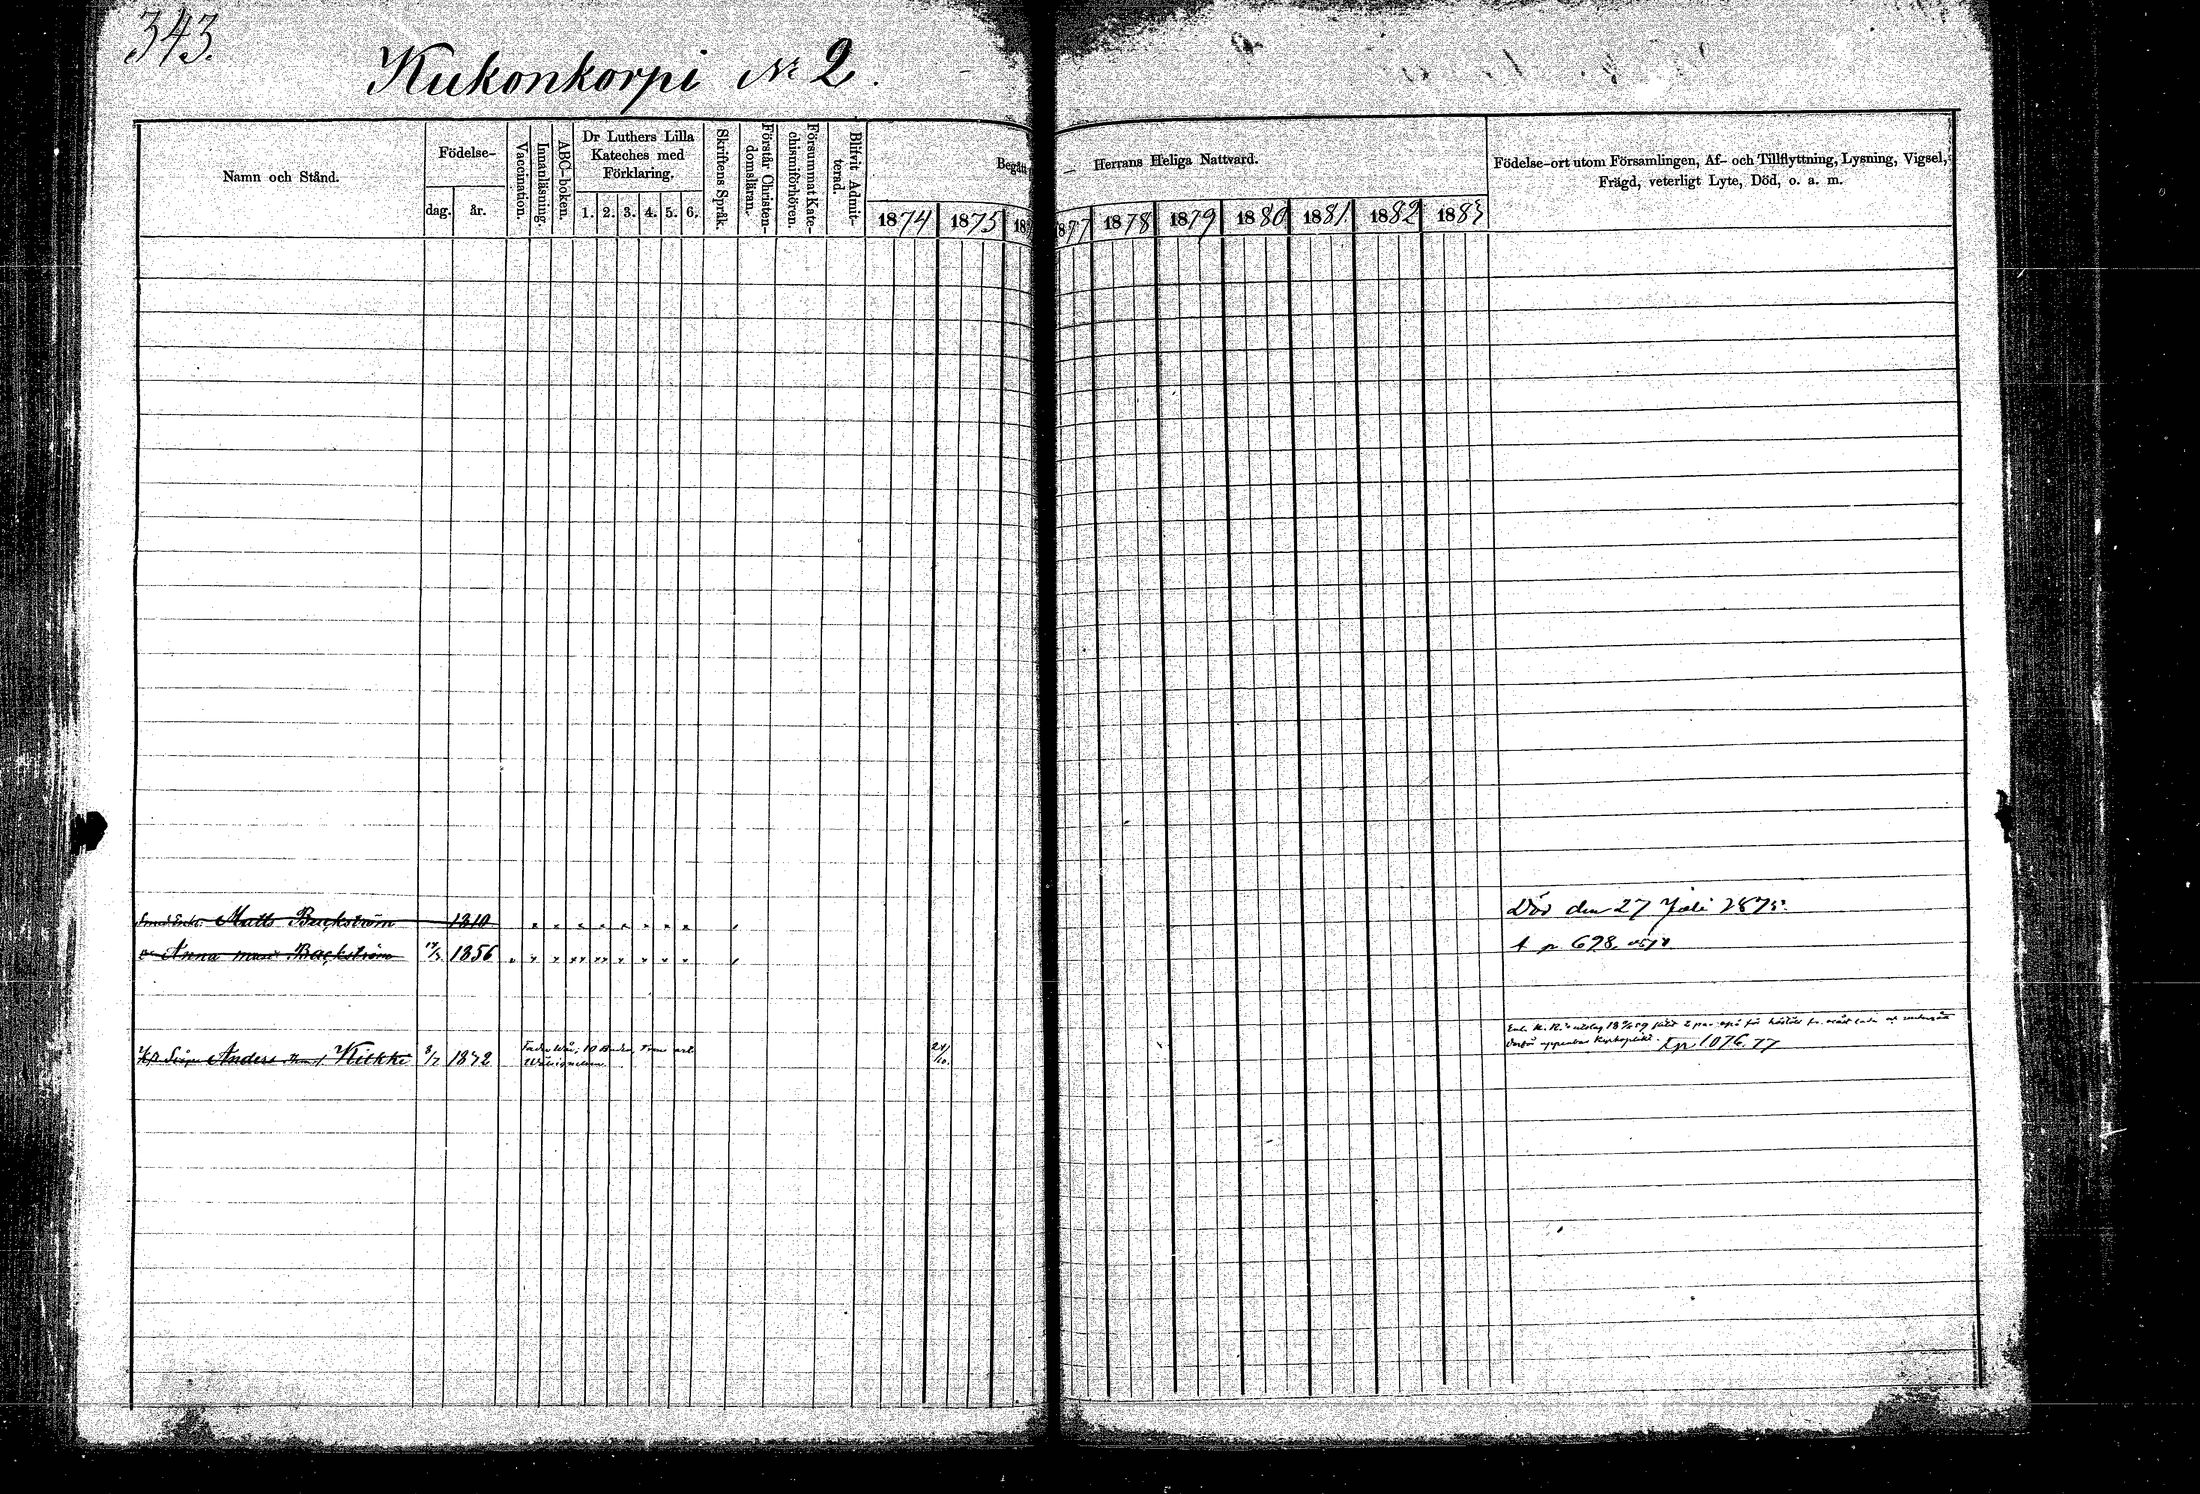 343.
Kukonkorpi № 2.
Namn och Stånd.
Födelse-
dag. år.
Vaccination.
Innanläsning.
ABC-boken.
Dr Luthers Lilla
Kateches med
Förklaring.
1. 2. 3. 4. 5. 6.
Skriftens Språk.
Förstår Christen-
domsläran.
Försummat Kate-
chismiförhören.
Blifvit Admit-
terad.
Begått
Herrans Heliga Nattvard.
1874 1875 18
1877 1878 1879 1880 1881 1882 1883
Födelse-ort utom Församlingen, Af- och Tillflyttning, Lysning, Vigsel,
Frägd, veterligt Lyte, Död, o. a. m.
Matts Backström 1810 Död den 27 Juli 1875.
Anna Backström 1856 p 698.
Anders Kukki 8/7 1872 Fader Vår, 10 Buden, Tron
Wälsignelsen 24/10.
1076. 77